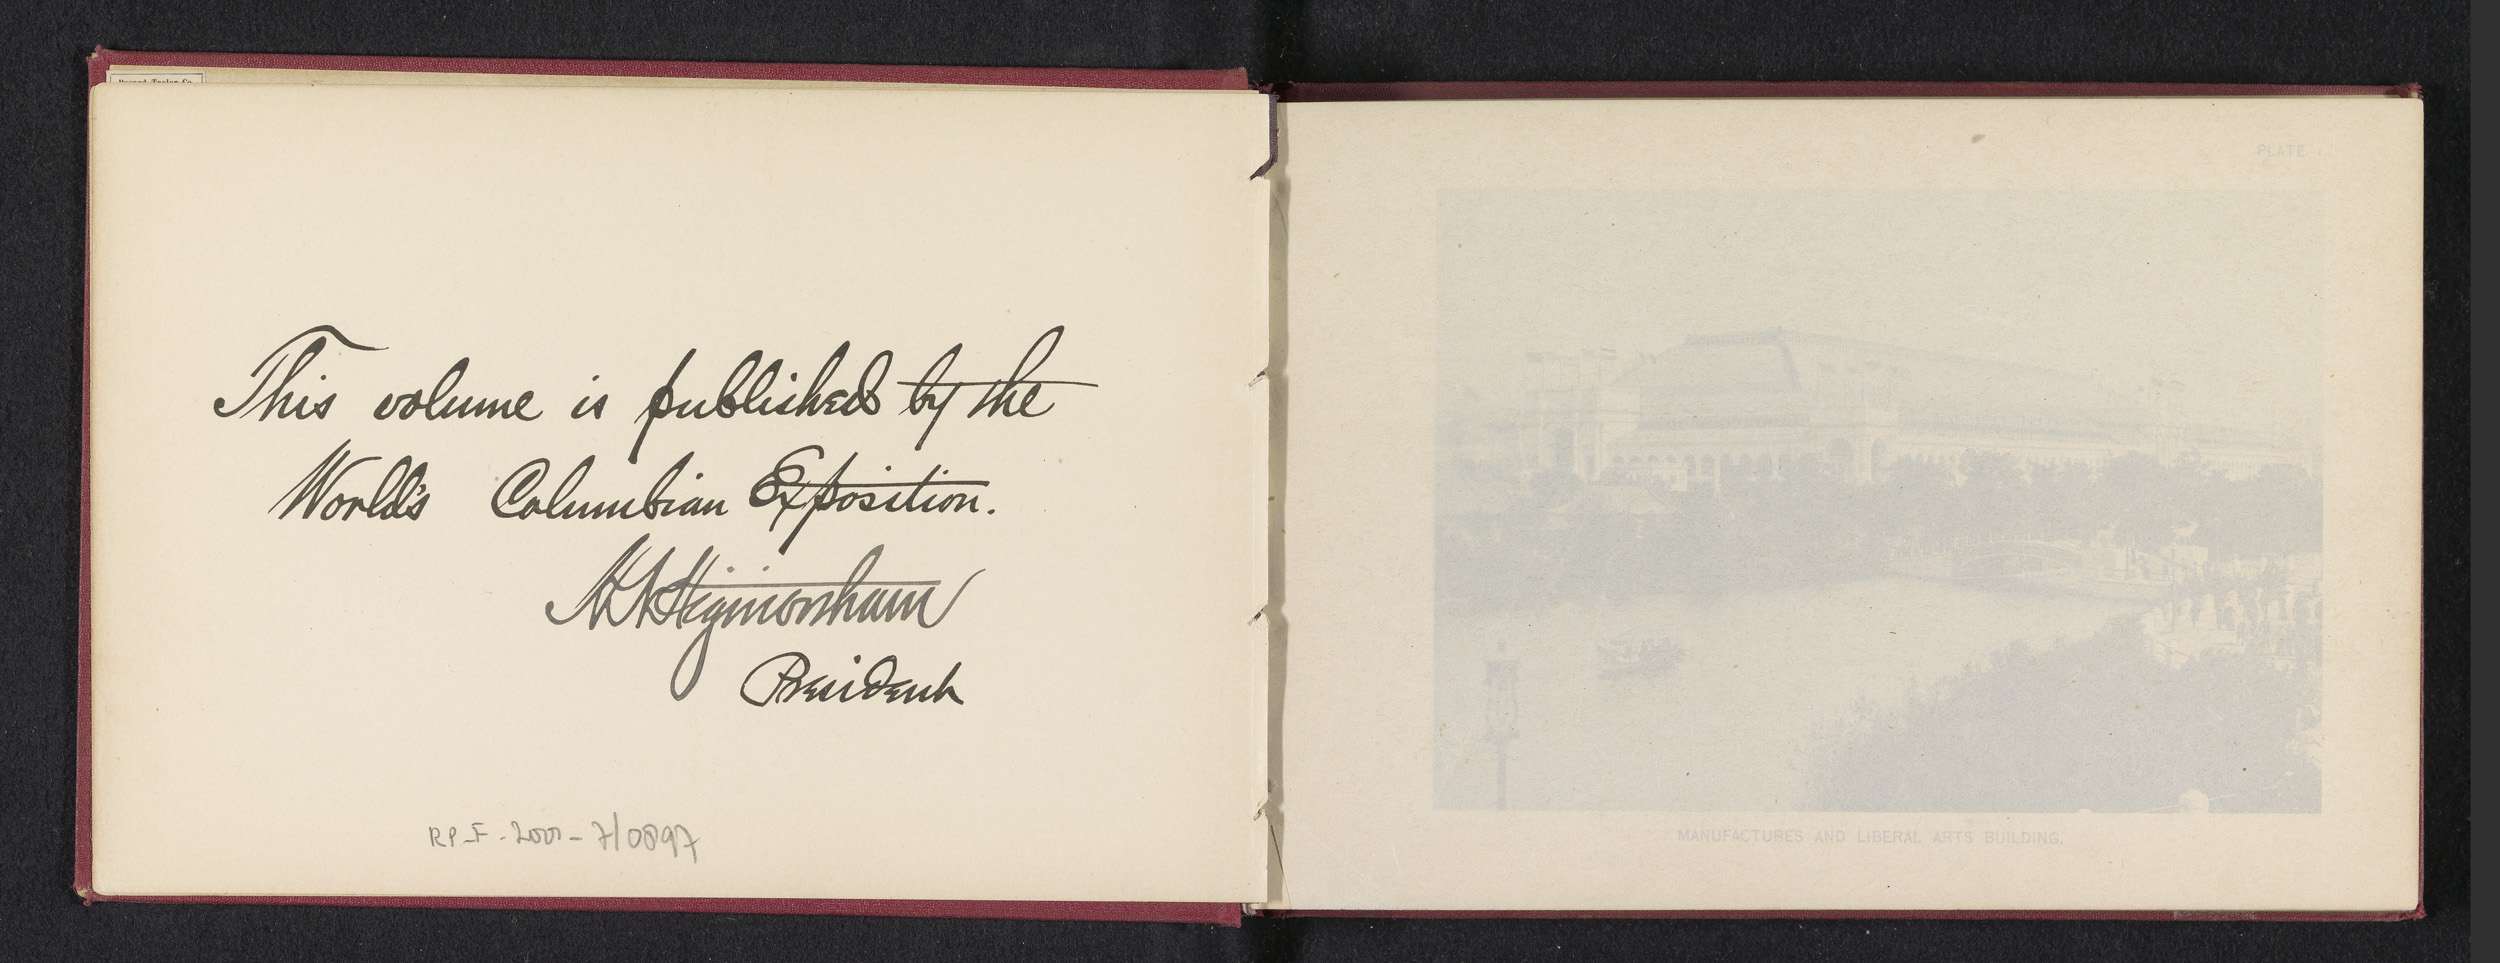 This volume is published by the
World's Columbian Exposition.
H N Higinbotham
President
RP-F-2001-7/0897
PLATE 1.
MANUFACTURES AND LIBERAL ARTS BUILDING.